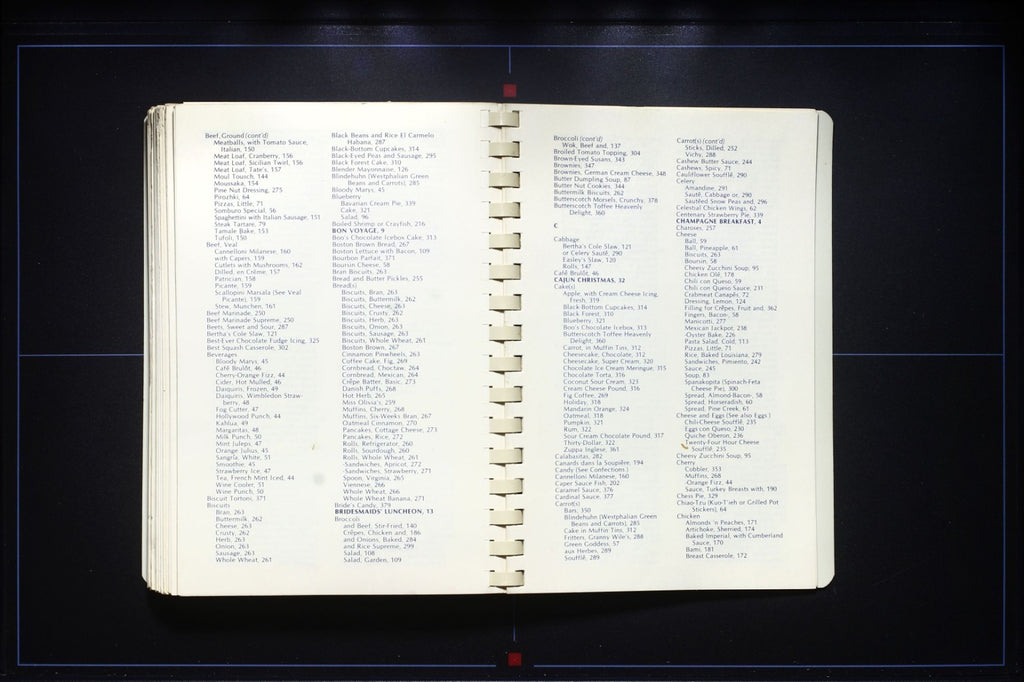 Beef, Ground (cont'd)
Meatballs, with Tomato Sauce,
Italian, 150
Meat Loaf, Cranberry, 156
Meat Loaf, Sicilian Twirl, 156
Meat Loaf, Tate's, 157
Moul Tousch, 144
Moussaka, 154
Pine Nut Dressing, 275
Pirozhki, 64
Pizzas, Little, 71
Somburo Special, 56
Spaghettini with Italian Sausage, 151
Steak Tartare, 79
Tamale Bake, 153
Tufoli, 150
Beef, Veal
Cannelloni Milanese, 160
with Capers, 159
Cutlets with Mushrooms, 162
Dilled, en Crème, 157
Patrician, 158
Picante, 159
Scallopini Marsala (See Veal
Picante), 159
Stew, Munchen, 161
Beef Marinade, 250
Beef Marinade Supreme, 250
Beets, Sweet and Sour, 287
Bertha's Cole Slaw, 121
Best-Ever Chocolate Fudge Icing, 325
Best Squash Casserole, 302
Beverages
Bloody Marys, 45
Café Brulôt, 46
Cherry-Orange Fizz, 44
Cider, Hot Mulled, 46
Daiquiris, Frozen, 49
Daiquiris, Wimbledon Straw-
berry, 48
Fog Cutter, 47
Hollywood Punch, 44
Kahlua, 49
Margaritas, 48
Milk Punch, 50
Mint Juleps, 47
Orange Julius, 45
Sangria, White, 51
Smoothie, 45
Strawberry Ice, 47
Tea, French Mint Iced, 44
Wine Cooler, 51
Wine Punch, 50
Biscuit Tortoni, 371
Biscuits
Bran, 263
Buttermilk, 262
Cheese, 263
Crusty, 262
Herb, 263
Onion, 263
Sausage, 263
Whole Wheat, 261
Black Beans and Rice El Carmelo
Habana, 287
Black-Bottom Cupcakes, 314
Black-Eyed Peas and Sausage, 295
Black Forest Cake, 310
Blender Mayonnaise, 126
Blindehuhn (Westphalian Green
Beans and Carrots), 285
Bloody Marys, 45
Blueberry
Bavarian Cream Pie, 339
Cake, 321
Salad, 96
Boiled Shrimp or Crayfish, 216
BON VOYAGE, 9
Boo's Chocolate Icebox Cake, 313
Boston Brown Bread, 267
Boston Lettuce with Bacon, 109
Bourbon Parfait, 371
Boursin Cheese, 58
Bran Biscuits, 263
Bread and Butter Pickles, 255
Bread(s)
Biscuits, Bran, 263
Biscuits, Buttermilk, 262
Biscuits, Cheese, 263
Biscuits, Crusty, 262
Biscuits, Herb, 263
Biscuits, Onion, 263
Biscuits, Sausage, 263
Biscuits, Whole Wheat, 261
Boston Brown, 267
Cinnamon Pinwheels, 263
Coffee Cake, Fig, 269
Cornbread, Choctaw, 264
Cornbread, Mexican, 264
Crêpe Batter, Basic, 273
Danish Puffs, 268
Hot Herb, 265
Miss Olivia's, 259
Muffins, Cherry, 268
Muffins, Six-Weeks Bran, 267
Oatmeal Cinnamon, 270
Pancakes, Cottage Cheese, 273
Pancakes, Rice, 272
Rolls, Refrigerator, 260
Rolls, Sourdough, 260
Rolls, Whole Wheat, 261
Sandwiches, Apricot, 272
Sandwiches, Strawberry, 271
Spoon, Virginia, 265
Viennese, 266
Whole Wheat, 266
Whole Wheat Banana, 271
Bride's Candy, 379
BRIDESMAIDS' LUNCHEON, 13
Broccoli
and Beef, Stir-Fried, 140
Crêpes, Chicken and, 186
and Onions, Baked, 284
and Rice Supreme, 299
Salad, 108
Salad, Garden, 109
Broccoli (cont'd)
Wok, Beef and, 137
Broiled Tomato Topping, 304
Brown-Eyed Susans, 343
Brownies, 347
Brownies, German Cream Cheese, 348
Butter Dumpling Soup, 87
Butter Nut Cookies, 344
Buttermilk Biscuits, 262
Butterscotch Morsels, Crunchy, 378
Butterscotch Toffee Heavenly
Delight, 360
C
Cabbage
Bertha's Cole Slaw, 121
or Celery Sauté, 290
Easley's Slaw, 120
Rolls, 147
Café Brulôt, 46
CAJUN CHRISTMAS, 32
Cake(s)
Apple, with Cream Cheese Icing,
Fresh, 319
Black-Bottom Cupcakes, 314
Black Forest, 310
Blueberry, 321
Boo's Chocolate Icebox, 313
Butterscotch Toffee Heavenly
Delight, 360
Carrot, in Muffin Tins, 312
Cheesecake, Chocolate, 312
Cheesecake, Super Cream, 320
Chocolate Ice Cream Meringue, 315
Chocolate Torta, 316
Coconut Sour Cream, 323
Cream Cheese Pound, 316
Fig Coffee, 269
Holiday, 318
Mandarin Orange, 324
Oatmeal, 318
Pumpkin, 321
Rum, 322
Sour Cream Chocolate Pound, 317
Thirty-Dollar, 322
Zuppa Inglese, 361
Calabasitas, 282
Canards dans la Soupière, 194
Candy (See Confections)
Cannelloni Milanese, 160
Caper Sauce Fish, 202
Caramel Sauce, 376
Cardinal Sauce, 377
Carrot(s)
Bars, 350
Blindehuhn (Westphalian Green
Beans and Carrots), 285
Cake in Muffin Tins, 312
Fritters, Granny Wile's, 288
Green Goddess, 57
aux Herbes, 289
Soufflé, 289
Carrot(s) (cont'd)
Sticks, Dilled, 252
Vichy, 288
Cashew Butter Sauce, 244
Cashews, Spicy, 71
Cauliflower Soufflé, 290
Celery
Amandine, 291
Sauté, Cabbage or, 290
Sautéed Snow Peas and, 296
Celestial Chicken Wings, 62
Centenary Strawberry Pie, 339
CHAMPAGNE BREAKFAST, 4
Charoses, 257
Cheese
Ball, 59
Ball, Pineapple, 61
Biscuits, 263
Boursin, 58
Cheesy Zucchini Soup, 95
Chicken Olé, 178
Chili con Queso, 59
Chili con Queso Sauce, 231
Crabmeat Canapés, 72
Dressing, Lemon, 124
Filling for Crêpes, Fruit and, 362
Fingers, Bacon-, 58
Manicotti, 277
Mexican Jackpot, 238
Oyster Bake, 226
Pasta Salad, Cold, 113
Pizzas, Little, 71
Rice, Baked Louisiana, 279
Sandwiches, Pimiento, 242
Sauce, 245
Soup, 83
Spanakopita (Spinach-Feta
Cheese Pie), 300
Spread, Almond-Bacon-, 58
Spread, Horseradish, 60
Spread, Pine Creek, 61
Cheese and Eggs (See also Eggs)
Chili-Cheese Soufflé, 235
Eggs con Queso, 230
Quiche Oberon, 236
Twenty-Four Hour Cheese
Soufflé, 235
Cheesy Zucchini Soup, 95
Cherry
Cobbler, 353
Muffins, 268
-Orange Fizz, 44
Sauce, Turkey Breasts with, 190
Chess Pie, 329
Chiao-Tzu (Kuo-T'ieh or Grilled Pot
Stickers), 64
Chicken
Almonds 'n Peaches, 171
Artichoke, Sherried, 174
Baked Imperial, with Cumberland
Sauce, 170
Bami, 181
Breast Casserole, 172